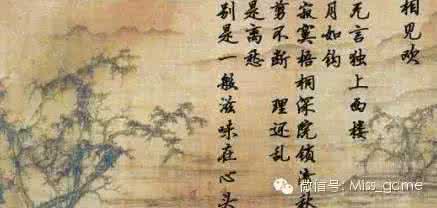 相见欢
无言独上西楼
月如钩
寂寞梧桐深院锁清秋
剪不断 理还乱
是离愁
别是一般滋味在心头
微信号: Miss_gcme